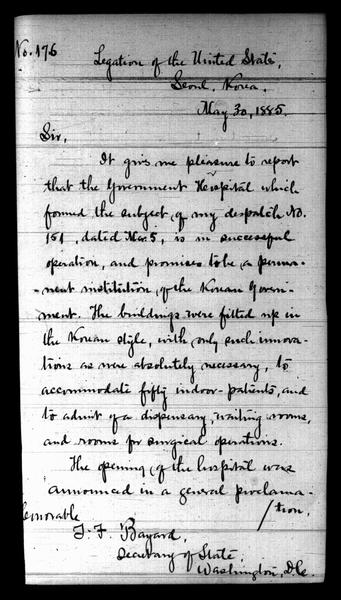 No. 176
Legation of the United States,
Seoul, Korea.
May 30, 1885.
Sir,
It gives me pleasure to report
that the Government Hospital which
formed the subject, of my despatch No.
151, dated Mar. 5, is in successful
operation, and promises to be a perma-
-nent institution, of the Korean Govern-
ment. The buildings were fitted up in
the Korean style, with only such innova-
tions as were absolutely necessary, to
accommodate fifty indoor-patients, and
to admit of a dispensary, waiting rooms,
and rooms for surgical operations.
The opening, of the hospital was
announced in a general proclama-
/tion.
Honorable
T. F. Bayard,
Secretary of State,
Washington, D.C.